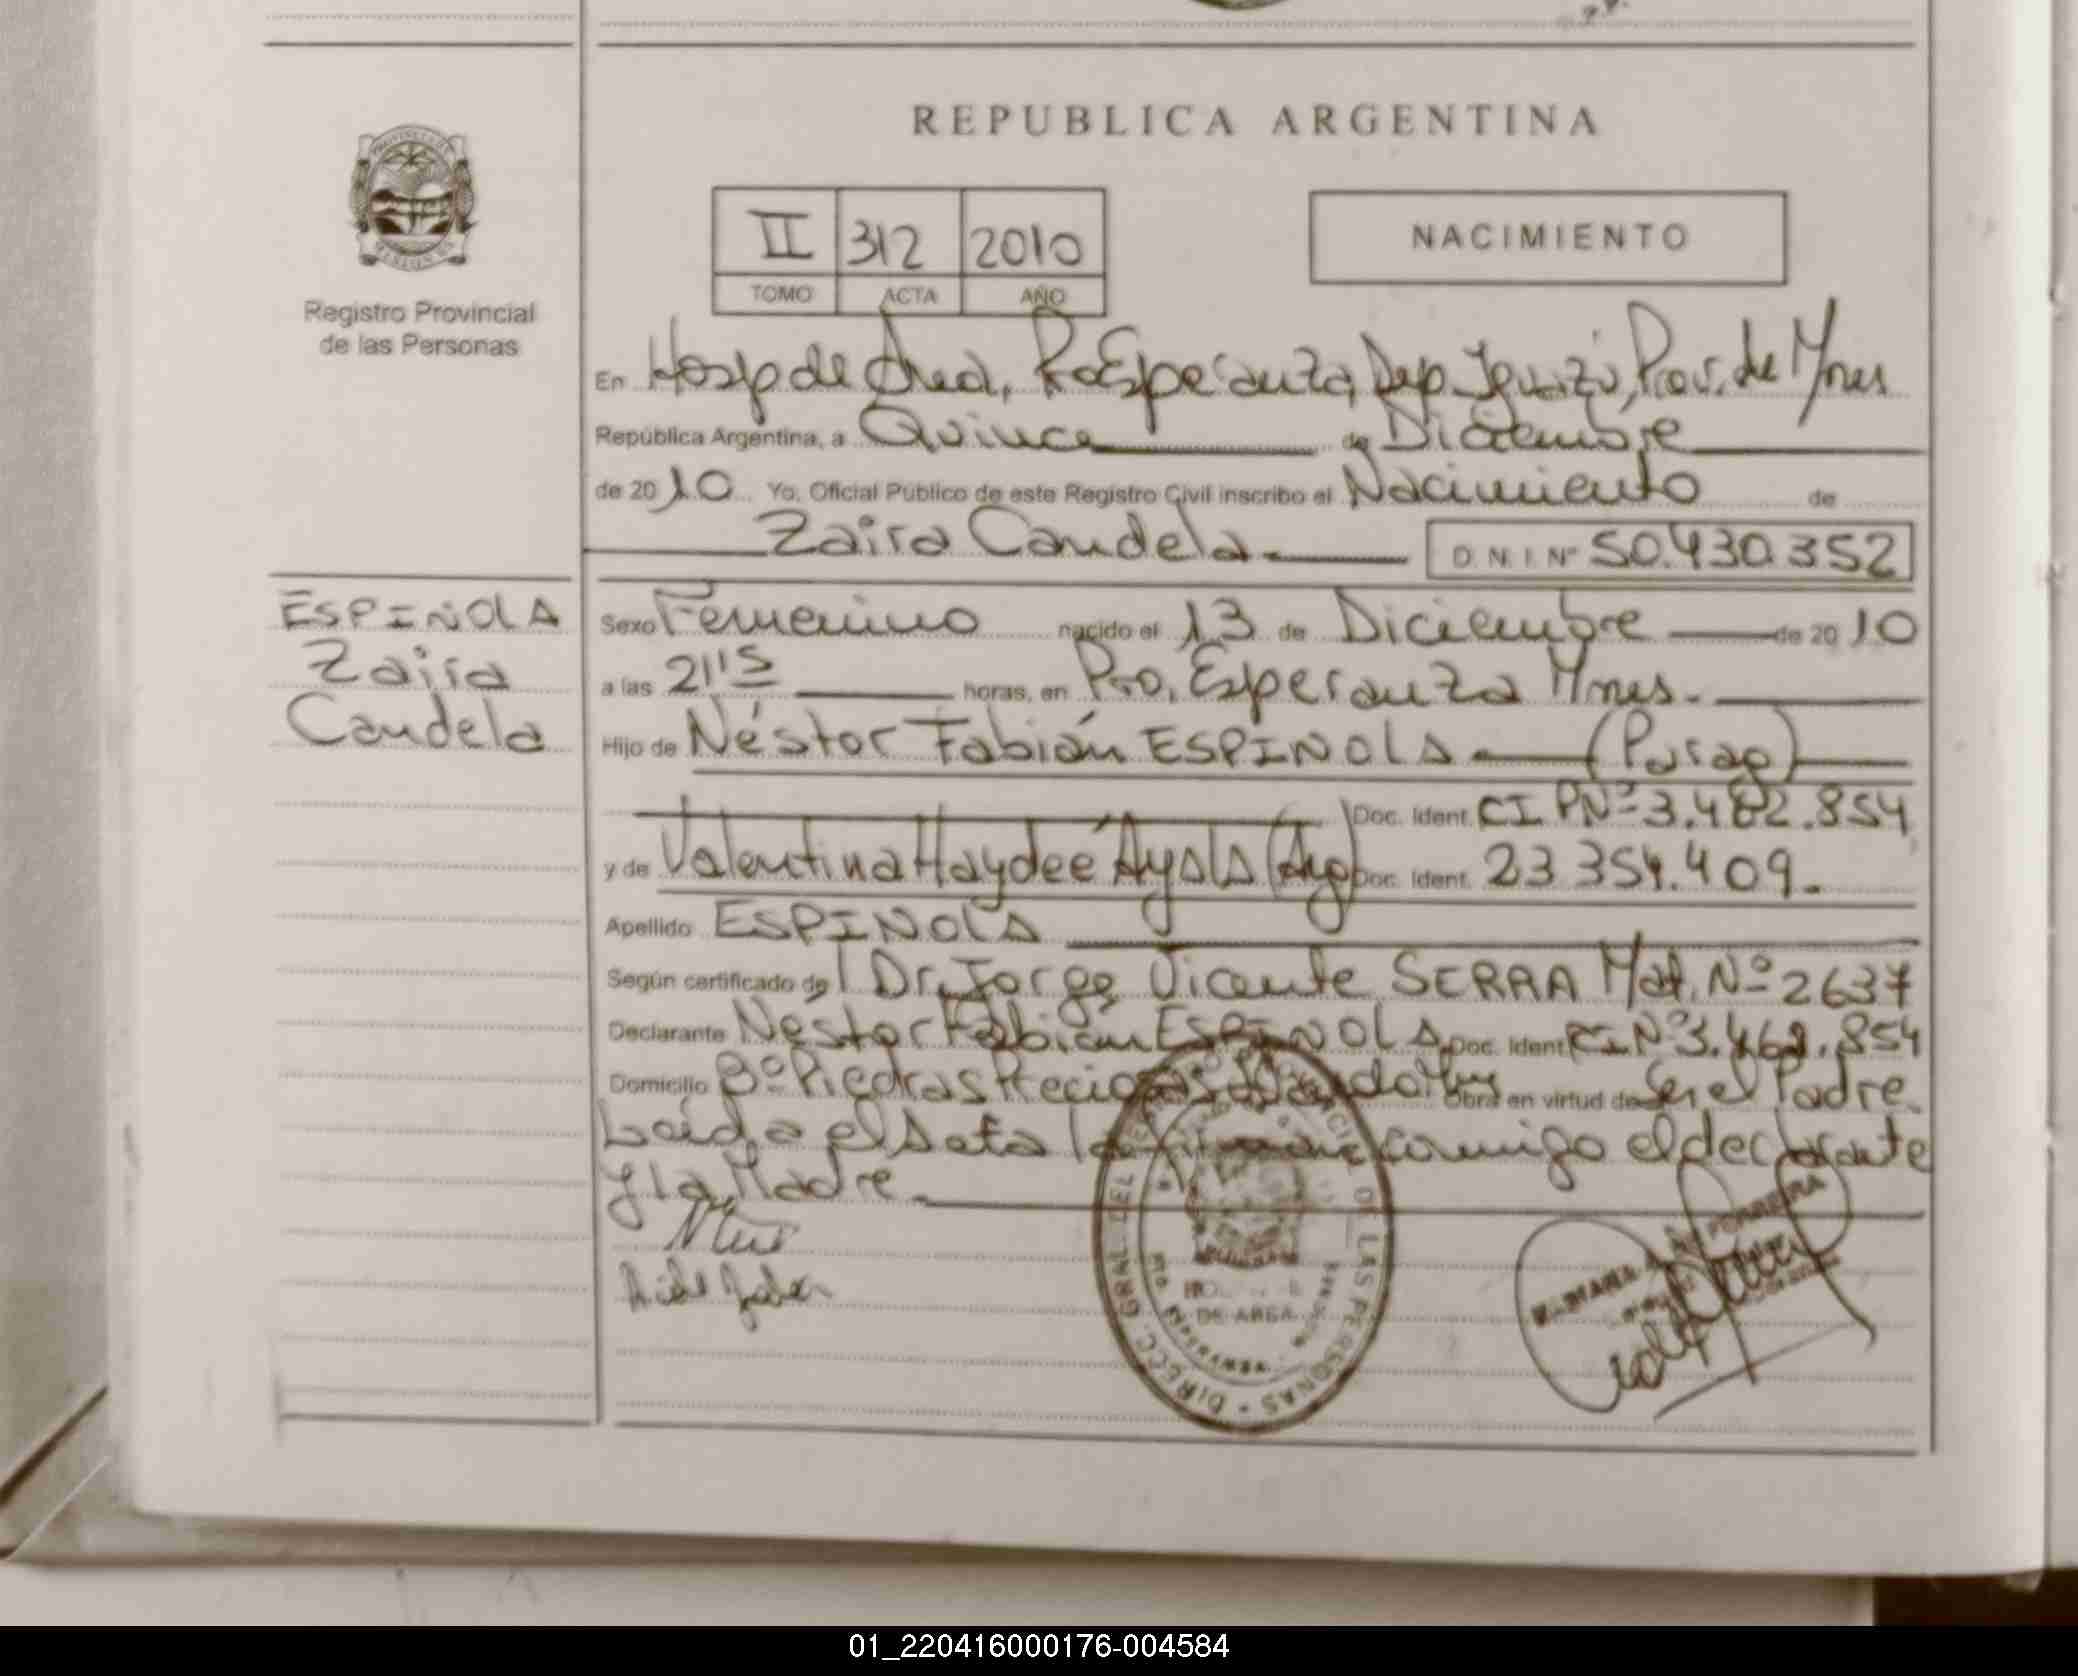 REPUBLICA ARGENTINA
II 312 2010
TOMO ACTA AÑO
NACIMIENTO
Registro Provincial
de las Personas
En Hosp de Area, Pto Esperanza, Dep. Iguazú, Prov. de Mnes
República Argentina, a Quince de Diciembre
de 2010 Yo, Oficial Público de este Registro Civil inscribo el Nacimiento de
Zaira Candela D.N.I. Nº 50.430.352
ESPINOLA
Zaira
Candela
Sexo Femenino nacido el 13 de Diciembre de 2010
a las 21'15 horas, en Pto. Esperanza Mnes.
Hijo de Néstor Fabián ESPINOLA (Parag)
Doc. Ident. CI PNº 3.482.854
y de Valentina Haydeé Ayala (Arg) Doc. Ident. 23 354.409.
Apellido ESPINOLA
Según certificado del Dr. Jorge Vicente SERRA Mat. Nº 2637
Declarante Néstor Fabián ESPINOLA Doc. Ident CI Nº 3.462.854
Domicilio Bº Piedras Preciosas Obra en virtud de Ser el Padre.
Leída el Acta la conmigo el declarante
y la Madre.
FERREIRA
DIRECC. GRAL. DEL REGISTRO PROVINCIAL DE LAS PERSONAS
01_220416000176-004584